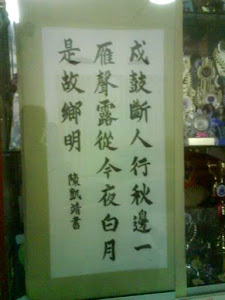 戍鼓斷人行秋邊一
雁聲露從今夜白月
是故鄉明
陳凱靖書